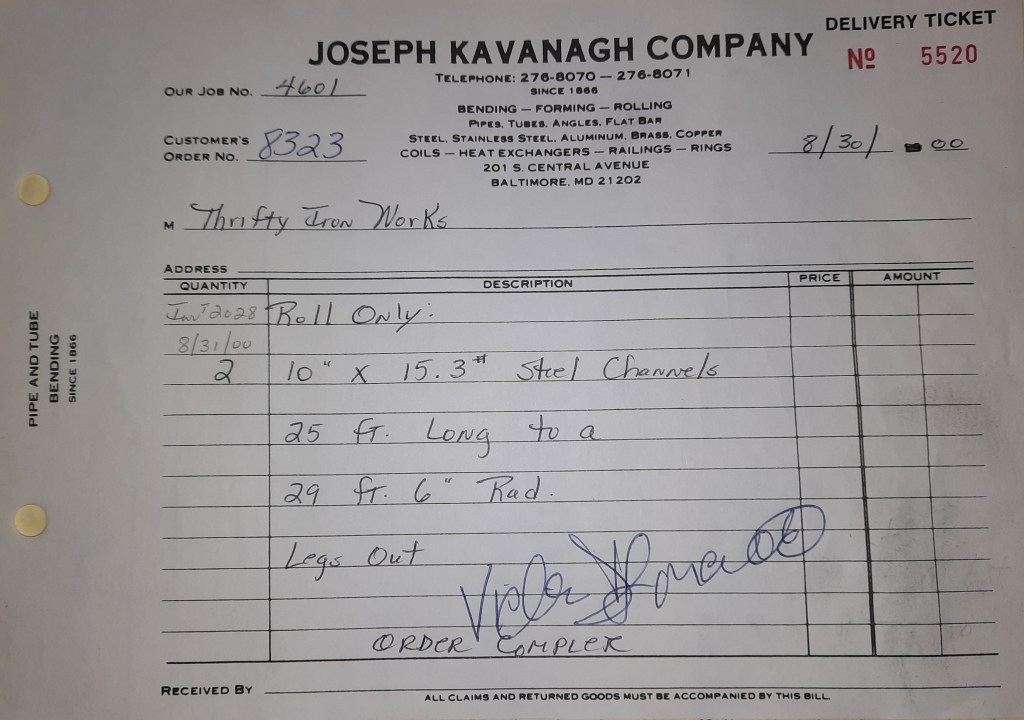 DELIVERY TICKET
JOSEPH KAVANAGH COMPANY
Nº 5520
TELEPHONE: 276-8070 — 276-8071
SINCE 1866
OUR JOB NO. 4601
BENDING — FORMING — ROLLING
PIPES, TUBES, ANGLES, FLAT BAR
STEEL, STAINLESS STEEL, ALUMINUM, BRASS, COPPER
COILS — HEAT EXCHANGERS — RAILINGS — RINGS
201 S. CENTRAL AVENUE
BALTIMORE, MD 21202
CUSTOMER'S
ORDER NO. 8323
8/30/ 00
M Thrifty Iron Works
ADDRESS
QUANTITY DESCRIPTION PRICE AMOUNT
Inv 2028 Roll Only:
8/31/00
2 10" x 15.3# Steel Channels
25 ft. Long to a
29 ft. 6" Rad.
Legs Out
ORDER
RECEIVED BY
ALL CLAIMS AND RETURNED GOODS MUST BE ACCOMPANIED BY THIS BILL
PIPE AND TUBE
BENDING
SINCE 1866